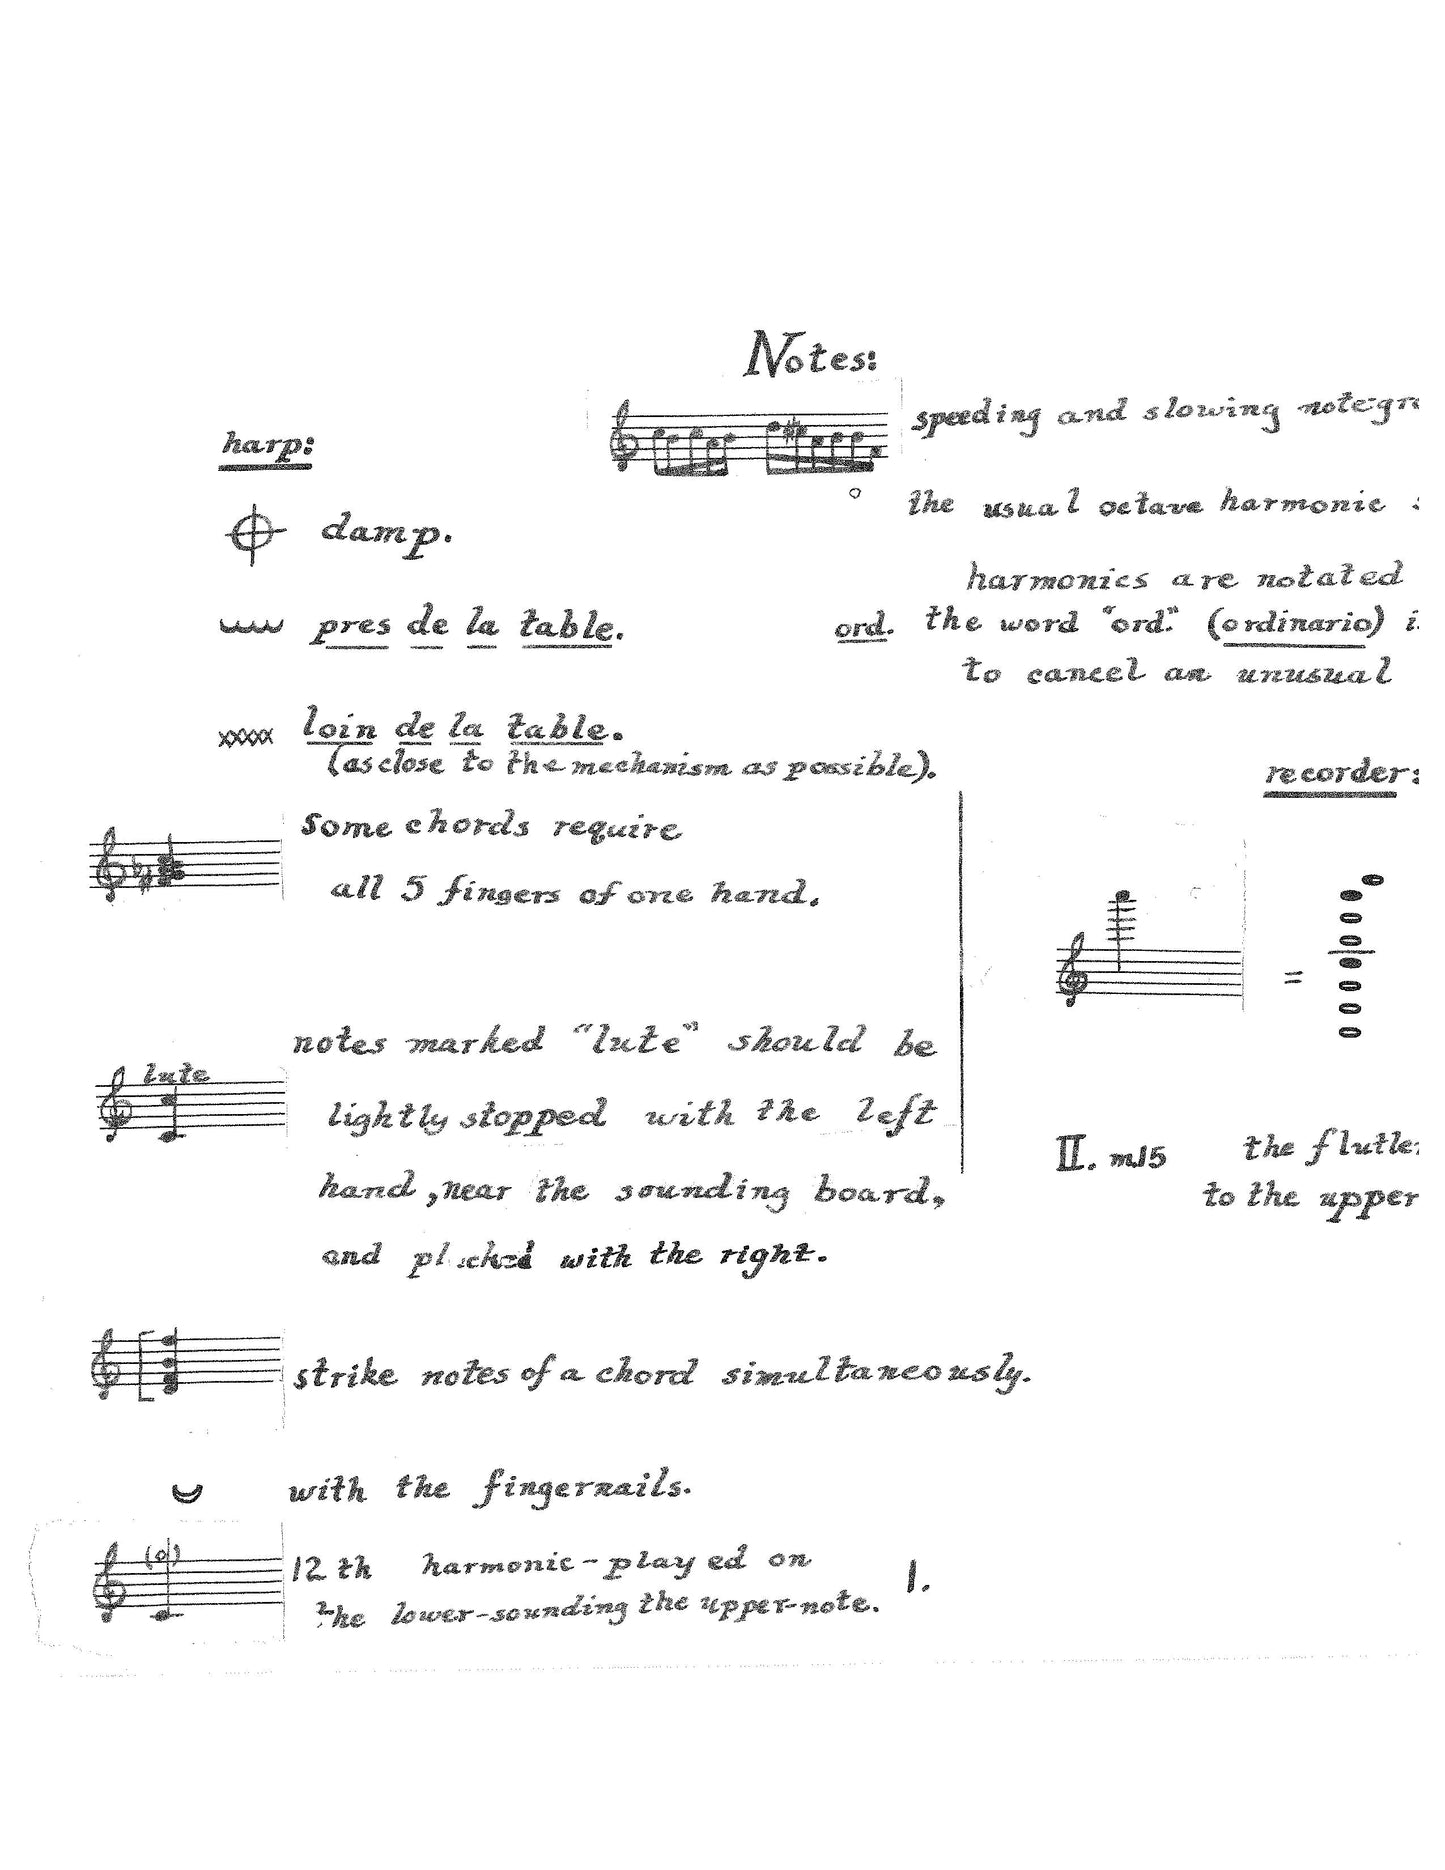 Notes:
speeding and slowing
the usual octave harmonic
harmonics are notated
ord. the word "ord." (ordinario)
to cancel an unusual
harp:
damp.
pres de la table.
loin de la table.
(as close to the mechanism as possible).
some chords require
all 5 fingers of one hand.
lute
notes marked "lute" should be
lightly stopped with the left
hand, near the sounding board,
and plucked with the right.
strike notes of a chord simultaneously.
with the fingernails.
12th harmonic - played on
the lower-sounding the upper-note.
recorder:
=
II. m.15 the
to the upper
1.